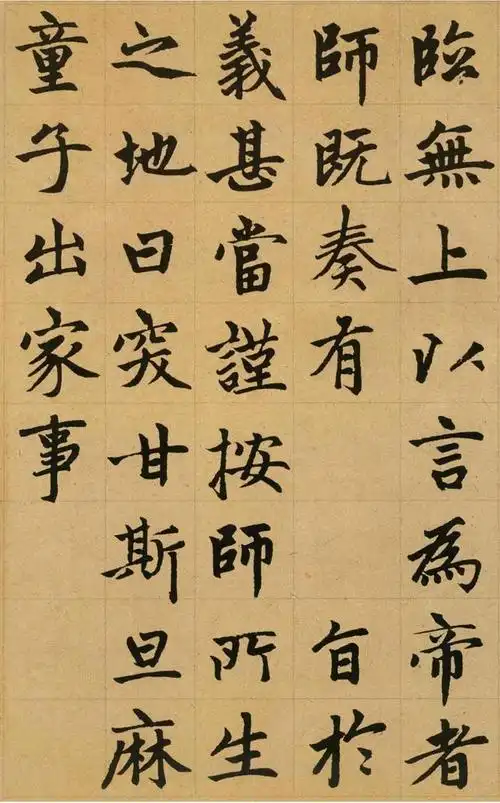 臨無上以言為帝者
師既奏有旨於
義甚當謹按師所生
之地曰突甘斯旦麻
童子出家事